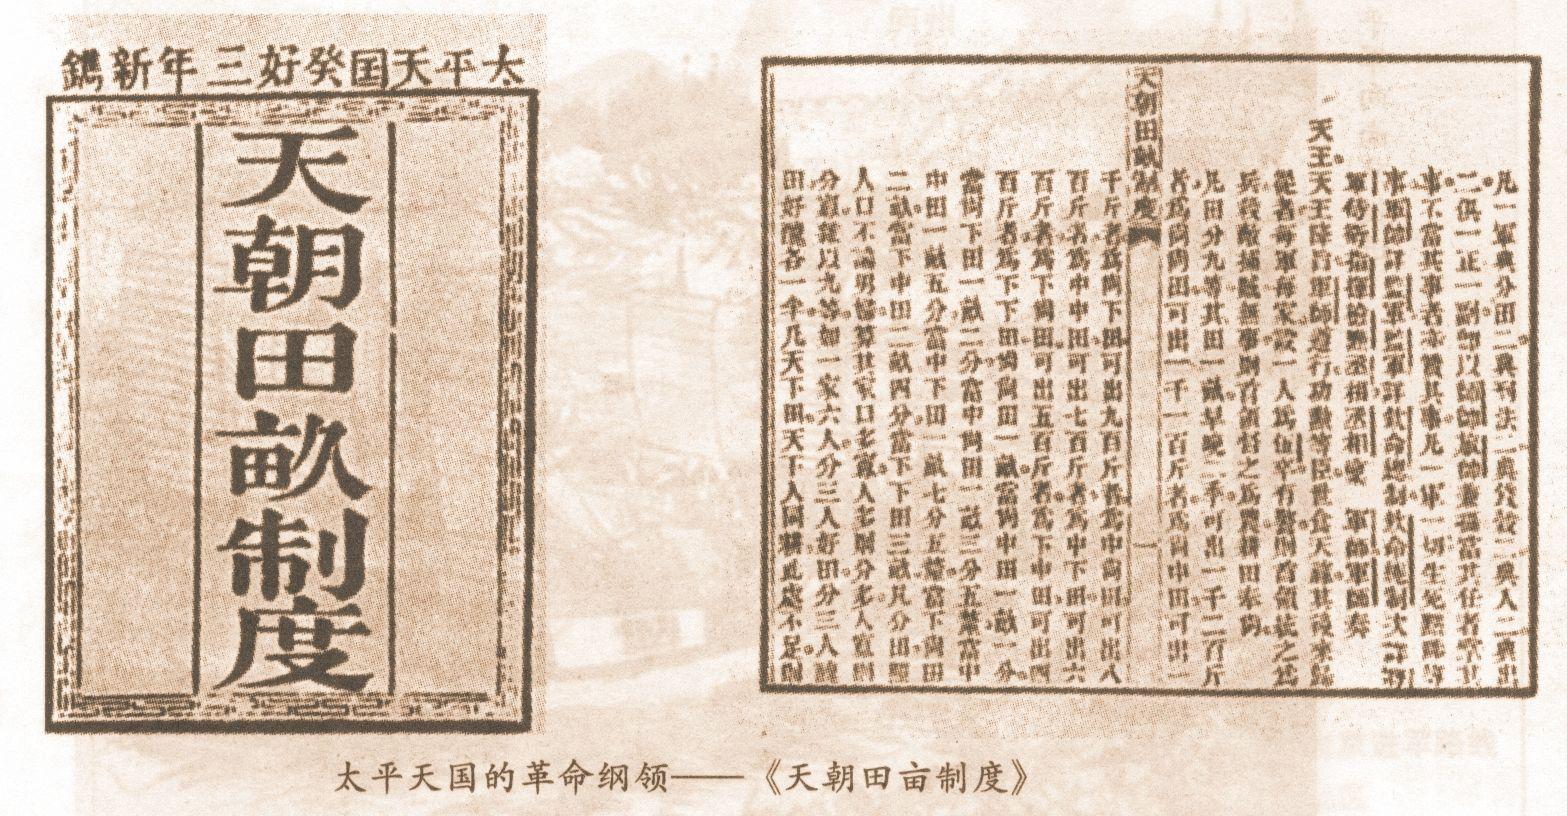 太平天囯癸好三年新鐫
天朝田畝制度
凡一軍典分田二典刑法二典錢穀二典入二典出
二俱一正一副卽以師帥旅帥兼攝當其任者掌其
事不當其事者亦贊其事凡一軍一切生死黜陟等
事軍帥詳監軍監軍詳欽命總制欽命總制次詳將
軍侍衛指揮檢點丞相丞相稟 軍師軍師奏
天王天王降旨軍師遵行功勳等臣世食天祿其後來歸
從者每軍每家設一人爲伍卒有警則首領統之爲
兵殺敵捕賊無事則首領督之爲農耕田奉尙
凡田分九等其田一畝早晚二季可出一千二百斤
者爲尙尙田可出一千一百斤者爲尙中田可出一
天朝田畝制度 一
千斤者爲尙下田可出九百斤者爲中尙田可出八
百斤者爲中中田可出七百斤者爲中下田可出六
百斤者爲下尙田可出五百斤者爲下中田可出四
百斤者爲下下田尙尙田一畝當尙中田一畝一分
當尙下田一畝二分當中尙田一畝三分五釐當中
中田一畝五分當中下田一畝七分五釐當下尙田
二畝當下中田二畝四分當下下田三畝凡分田照
人口不論男婦算其家口多寡人多則分多人寡則
分寡雜以九等如一家六人分三人好田分三人醜
田好醜各一半凡天下田天下人同耕此處不足則
太平天国的革命纲领——《天朝田亩制度》